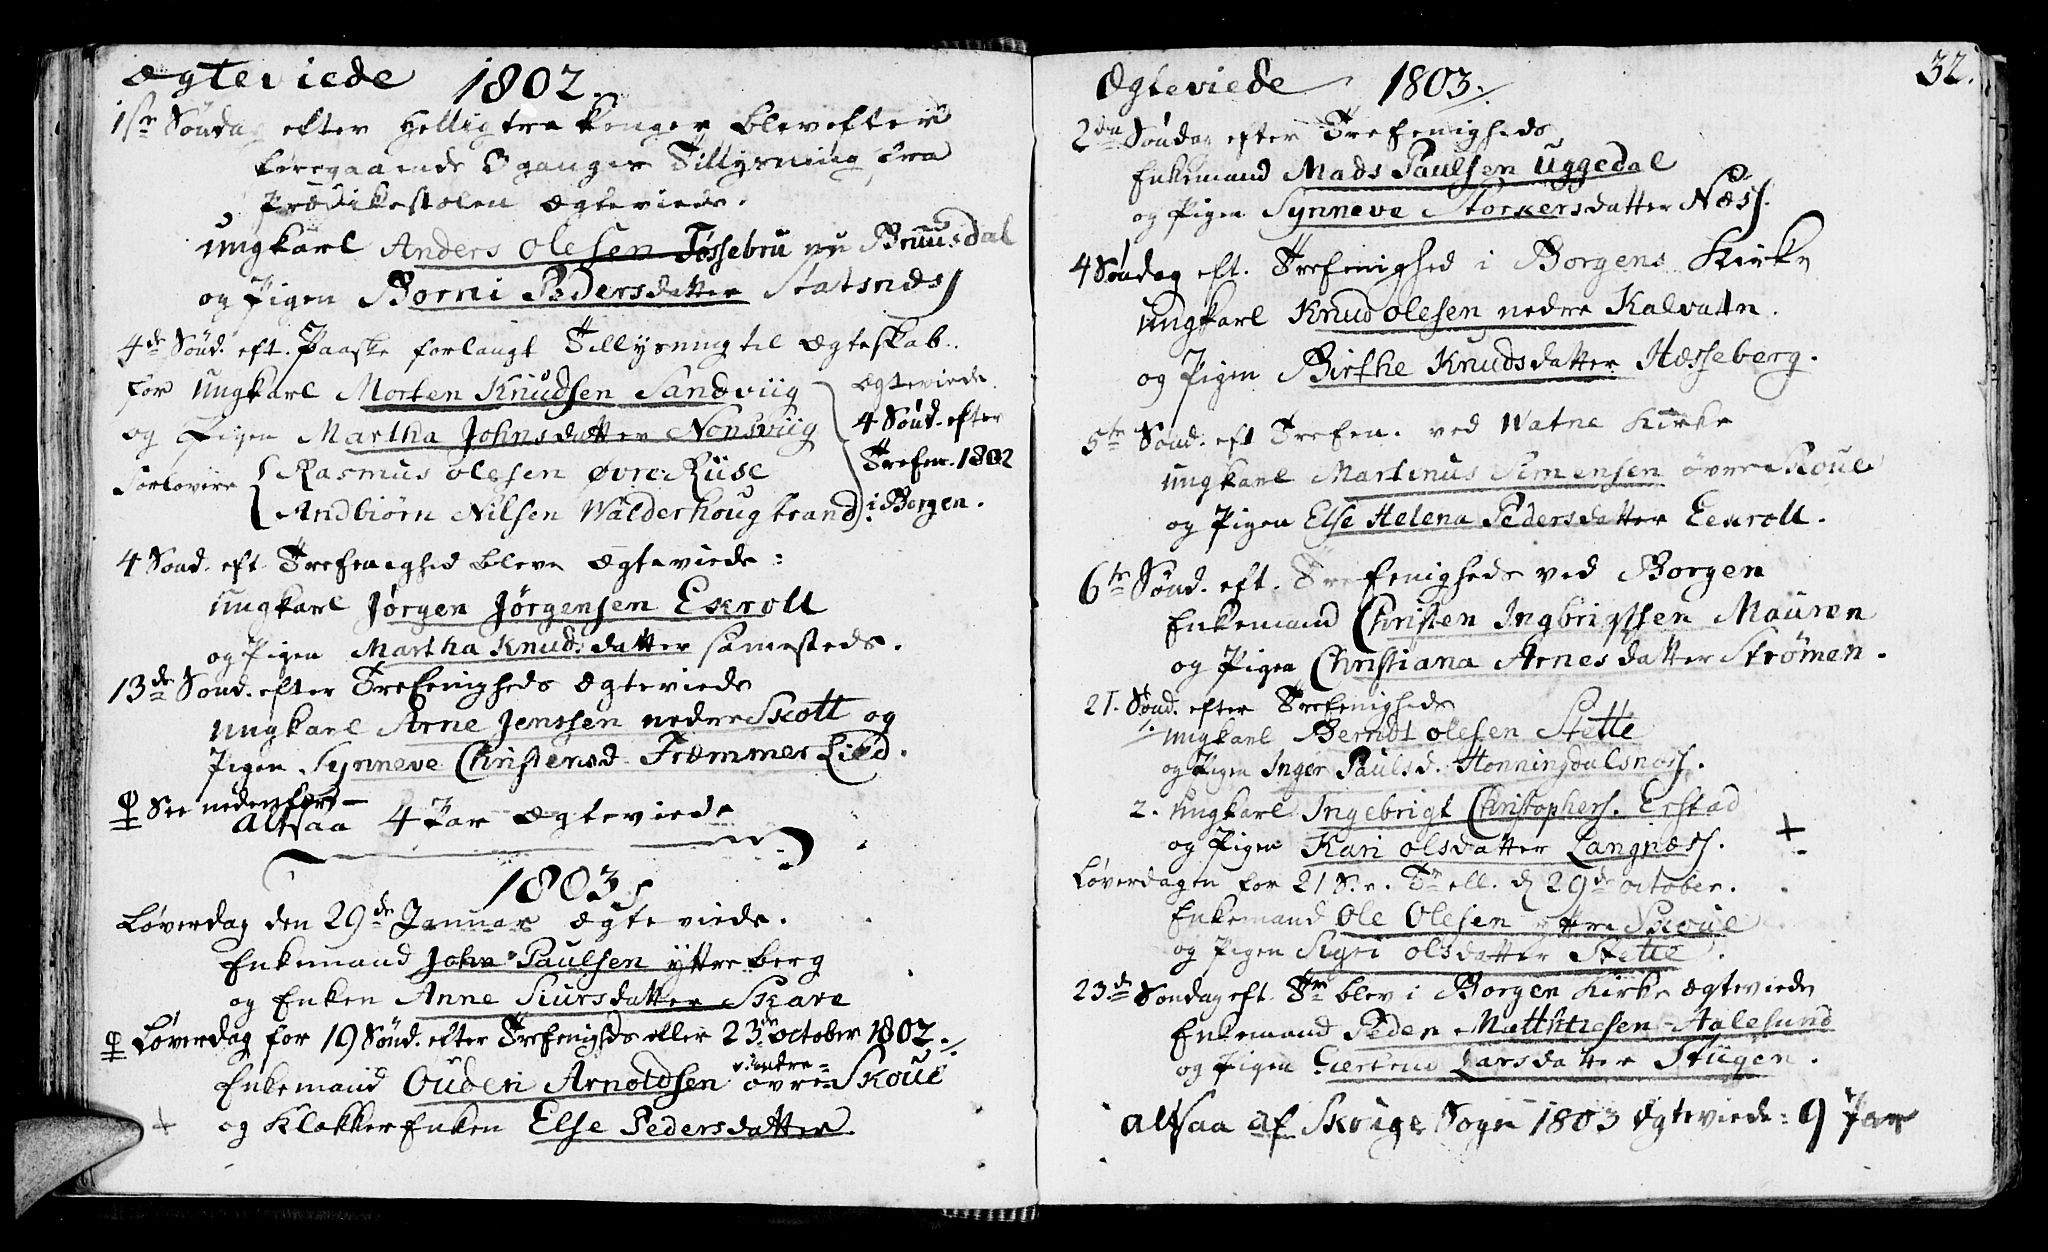 Ægteviede 1802.
1ste Søndag efter Hellig tre konger blev efter
foregaaende 3 ganger Tillysning fra
Prædikestolen ægteviede.
Ungkarl Anders Olesen Tøssebru nu Bruusdal
og Pigen Borni Pedersdatter Statsnæs
4de Sønd. eft. Paaske forlangt Tillysning til Ægteskab.
for Ungkarl Morten Knudsen Sandviig
og Pigen Martha Johnsdatter Nonsviig
Forlovere Rasmus Olesen Øvre Riise
Andbiørn Nilsen Walderhougstrand
Ægteviede
4 Sønd. efter
Trefen. 1802
i Borgen.
4 Sønd. eft. Trefenighed bleve Ægteviede:
Ungkarl Jørgen Jørgensen Exroll
og Pigen Martha Knudsdatter samesteds.
13de Sønd. efter Trefenigheds Ægteviede
Ungkarl Arne Jenssen nedre Skott og
Pigen Synneve Christensd. Fræmmerlied.
See nedenfor
Altsaa 4 Par Ægteviede
1803
Løverdag den 29de Januar Ægteviede.
Enkemand John Paulsen yttre berg
og Enken Anne Siursdatter Skare
Løverdag for 19 Sønd. efter Trefenigheds eller 23de October 1802.
Enkemand Ouden Arnoldsen øvre Skoue
og Klokker Enken Else Pedersdatter
Ægteviede 1803. 32.
2den Søndag efter Trefenigheds
Enkemand Mads Paulsen Uggedal
og Pigen Synneve Storkersdatter Næss.
4 Søndag eft. Trefenighed i Borgens Kirke
Ungkarl Knud Olesen nedre Kalvatn.
og Pigen Birthe Knudsdatter Hæsseberg.
5te Sønd. eft Trefen. ved Watne Kirke
Ungkarl Martinus Simensen øvre Skoue
og Pigen Else Helena Pedersdatter Eexroll.
6te Sønd. eft. Trefenigheds ved Borgen
Enkemand Christen Ingbrigtsen Mauren
og Pigen Christiana Arnesdatter Strømen.
21. Sønd. efter Trefenigheds
1. Ungkarl Berndt Olesen Stette
og Pigen Inger Paulsd. Honningdalsnæss.
2. Ungkarl Ingebrigt Christophers. Erstad
og Pigen Kari Olsdatter Langnæss.
Løverdagen for 21 S. e. Tr. ell. d 29de October.
Enkemand Ole Olesen yttre Skoue
og Pigen Sigri Olsdatter Stette.
23de Søndag eft. Tr. blev i Borgen Kirke Ægteviede
Enkemand Peder Matthiesen Aalesund
og Pigen Larsdatter Stügen.
Altsaa af Skouge Sogn 1803 Ægteviede: 9 Par